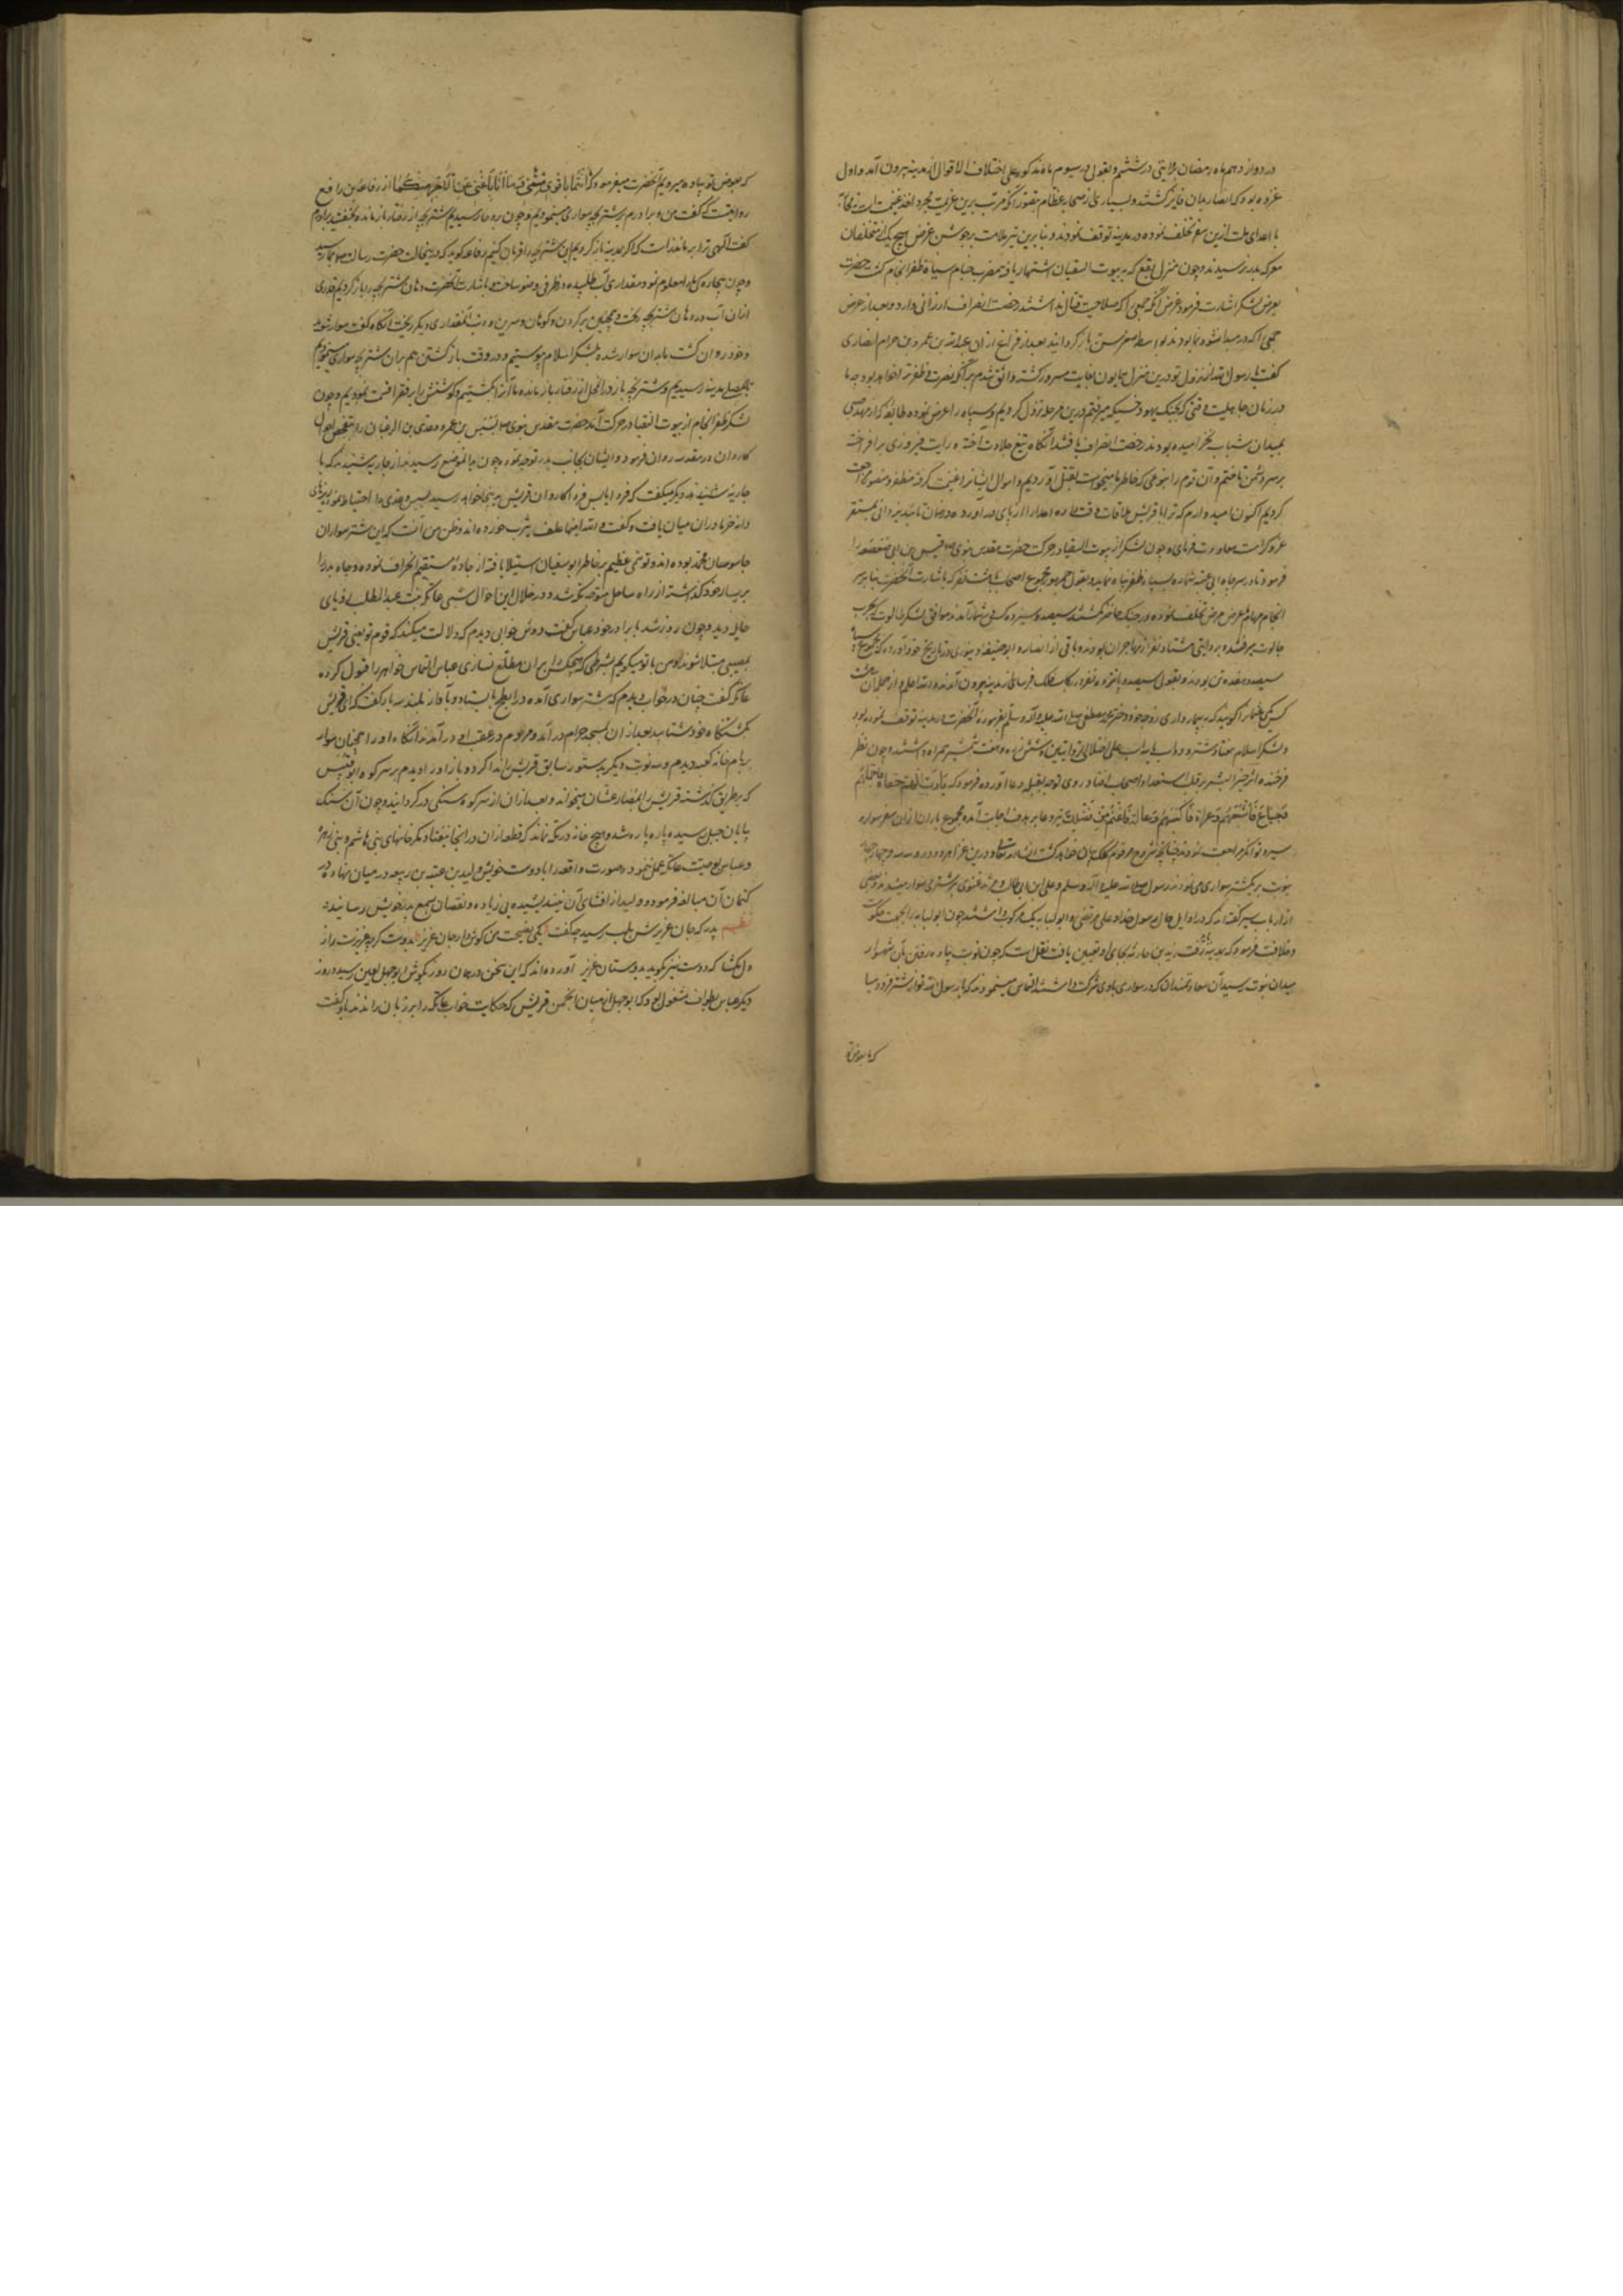 در دوازدهم ماه رمضان و روایتی در ششم و بقولی در سیوم ماه مذکور علی اختلاف الاقوال از مدینه بیرون آمد و اول
غزوه بود که انصار بدان فایز گشتند و بسیاری از صحابه عظام بتصور آنکه مرتب برین عزیمت مجرد اخذ غنیمت است نه محاربه
با اعدای ملت ازین سفر تخلف نموده در مدینه توقف نمودند و بنابرین تیر ملامت بر جوشن عرض هیچ یک از متخلفان
معرکه بدر نرسید و چون منزل بقع که به بیوت السقیا اشتهار یافته مضرب خیام سپاه ظفر انجام گشت حضرت
بعرض لشکر اشارت فرمود و غرض آنکه جمعی را که صلاحیت قتال نداشتند رخصت انصراف ارزانی دارد و بعد از عرض
جمعی را که در صدد نشو و نما بودند بواسطه صغر سن باز گردانید بعد از فراغ ازان عبدالله بن عمرو بن حرام انصاری
گفت یا رسول الله از نزول تو درین منزل همایون بغایت مسرور گشته واثق شدم بر آنکه نصرت و ظفر ترا خواهد بود چه ما
در زمان جاهلیت وقتی که بجنگ یهود حسیکه میرفتیم درین مرحله نزول کردیم و سپاه را عرض نموده طایفه که از مهد صبی
بمیدان شباب نخرامیده بودند رخصت انصراف یافتند آنگاه تیغ جلادت آخته و رایت فیروزی برافراخته
بر سر دشمن تاختیم و آن قوم را بنوعی که خاطر ما میخواست بقتل آوردیم و اموال ایشانرا غنیمت گرفته مظفر و منصور مراجعت
کردیم اکنون امیدوارم که ترا با قریش ملاقات واقع شده اعدا را از پای در آورده در ضمان تایید یزدانی بمستقر
عز و کرامت معاودت فرمای و چون لشکر از بیوت السقیا در حرکت حضرت مقدس نبوی ص قیس بن ابی صعصعه را
فرمود تا در سر چاه ابی عنبه شماره سپاه ظفر پناه نماید و بقول جمهور مجموع اصحاب با هشت نفر که باشارت آنحضرت بنا بر سر
انجام مهام و عرض مرض تخلف نموده در جنگ حاضر نگشتند سیصد و سیزده کس بشمار آمدند موافق لشکر طالوت که بحرب
جالوت میرفتند و بروایتی هشتاد نفر از مهاجران بودند و باقی از انصار و ابو حنیفه دینوری در تاریخ خود آورده که مجموع سپاه
سیصد و هفده تن بودند و بقول سیصد و پانزده نفر در رکاب فلک فرسای از مدینه بیرون آمدند و الله اعلم و از جمله آن هشت
کس یکی عثمان را گویند که به بیمار داری زوجه خود دختر محمد مصطفی صلی الله علیه و آله وسلم بفرموده آنحضرت در مدینه توقف نموده بود
و لشکر اسلام هفتاد شتر و دو اسپ یا سه اسپ علی اختلاف الروایتین و شش زره و هفت شمشیر همراه داشتند و چون نظر
فرخنده اثر خیر البشر بر قلت استعداد اصحاب افتاد روی توجه بقبله دعا آورده فرمود که یا رب انهم حفاة فاحملهم
و جیاع فاشبعهم و عراة فاکسهم و عالة فاغنهم من فضلک تیر دعا بر هدف اجابت آمده مجموع یاران ازان سفر سواره
سیر و توانگر مراجعت نمودند چنانچه مشروح مرقوم کلک بیان خواهد گشت انشاء الله تعالی و درین غزا هر دو و سه و چهار صحابه
بنوبت بر یک شتر سواری می نمودند رسول صلی الله علیه و آله وسلم و علی ابن ابی طالب و مرثد غنوی بر شتری سوار میشدند و بعضی
از ارباب سیر گفته اند که در اوایل حال رسول خدا و علی مرتضی و ابو لبابه یک مرکوب داشتند چون ابو لبابه را بجهت حکومت
و خلافت فرمود که بمدینه باز رفت زید بن حارثه بجای او تعیین یافت نقل است که چون نوبت پیاده رفتن بآن شهسوار
میدان نبوت رسید آن سعادتمندان که در سواری با وی شرکت داشتند التماس مینمودند که یا رسول الله تو از شتر فرود میا
که ما بعوض تو
که بعوض تو پیاده میرویم آنحضرت میفرمود که انتما باقوی منی و ما انا باغنی عن الاجر منکما از رفاعه بن رافع
روایتست که گفت من و برادرم بر شتر بچه سواری مینمودیم و چون بروحا رسیدیم شتر بچه از رفتار باز مانده بخفت برادرم
گفت الهی ترا بر ما نذر است که اگر بمدینه باز گردیم این شتر بچه را قربان کنیم رفاعه گوید که درینحالت حضرت رسالت ص بما رسید
و چون بیچارگی ما را معلوم نمود مقداری آب طلبیده در ظرفی وضو ساخت و باشارت آنحضرت دهان شتر بچه را باز کردیم قدری
ازان آب در دهان شتر بچه ریخت و همچنین بر گردن و کوهان و سرین و دنب آن مقداری دیگر ریخت آنگاه گفت سوار شوید
و خود روان گشت ما بدان سوار شده بلشکر اسلام پیوستیم و در وقت بازگشتن هم بران شتر بچه سواری مینمودیم
بمصلی مدینه رسیدیم و شتر بچه باز در آنمحل از رفتار باز مانده ما آنرا کشتیم و گوشتش را بر فقرا قسمت نمودیم و چون
لشکر ظفر انجام از بیوت السقیا در حرکت آمد حضرت مقدس نبوی ص بسبس بن عمرو و عدی بن ابی الزغبا را بتفحص احوال
کاروان در مقدمه روان فرمود و ایشان بجانب بدر توجه نموده چون بدانموضع رسیدند از جاریه شنیدند که با
جاریه دیگر میگفت که فردا یا پس فردا کاروان قریش بدینجا خواهد رسید بسبس و عدی
دانه خرما دران میان یافت و گفت والله اینها علف یثرب خورده اند و ظن من آنست که این شتر سواران
جاسوسان محمد بوده اند و توهمی عظیم بر خاطر ابوسفیان استیلا یافته از جاده مستقیم انحراف نموده و چاه بدر را
بر یسار خود گذاشته از راه ساحل متوجه مکه شد و در خلال این احوال شبی عاتکه بنت عبدالمطلب رویای
هایل دید و چون روز شد با برادر خود عباس گفت دوش خوابی دیدم که دلالت میکند که قوم تو یعنی قریش
بمصیبتی مبتلا شوند و من با تو میگویم بشرطی که هیچکس را بران مطلع نسازی عباس التماس خواهر را قبول کرده
عاتکه گفت چنان در خواب دیدم که شتر سواری آمده در ابطح بایستاد و بآواز بلند سه بار گفت که ای قریش
بکشتنگاه خود شتابید بعد ازان بمسجد حرام در آمد و مردم در عقب او در آمدند آنگاه او را همچنان سواره
بر بام خانه کعبه دیدم و سه نوبت دیگر بدستور سابق قریش را ندا کرد و باز او را دیدم بر سر کوه ابو قبیس
که بر طریق گذشته قریش را بمصارعشان میخواند و بعد ازان از سر کوه سنگی در گردانید و چون آن سنگ
بپایان جبل رسید پاره پاره شد و هیچ خانه در مکه نماند که قطعه ازان در آنجا نیفتاد مگر خانهای بنی هاشم و بنی زهره
و عباس بوصیت عاتکه عمل ننموده صورت واقعه را با دوست خویش ولید بن عتبه بن ربیعه در میان نهاد و در
کتمان آن مبالغه فرمود و ولید از افشای آن نیندیشیده بی زیاده و نقصان بسمع پدر خویش رسانید
نظم پدر که جان عزیزش بلب رسید چه گفت یکی نصیحت من گوش دار جان عزیز بدوست گرچه عزیزست راز
دل مگشا که دوست نیز بگوید بدوستان عزیز آورده اند که این سخن در همان روز بگوش ابوجهل لعین رسید و روز
دیگر عباس بطواف مشغول بود که ابوجهل از میان انجمن قریش که حکایت خواب عاتکه را بر زبان راندند با او گفت